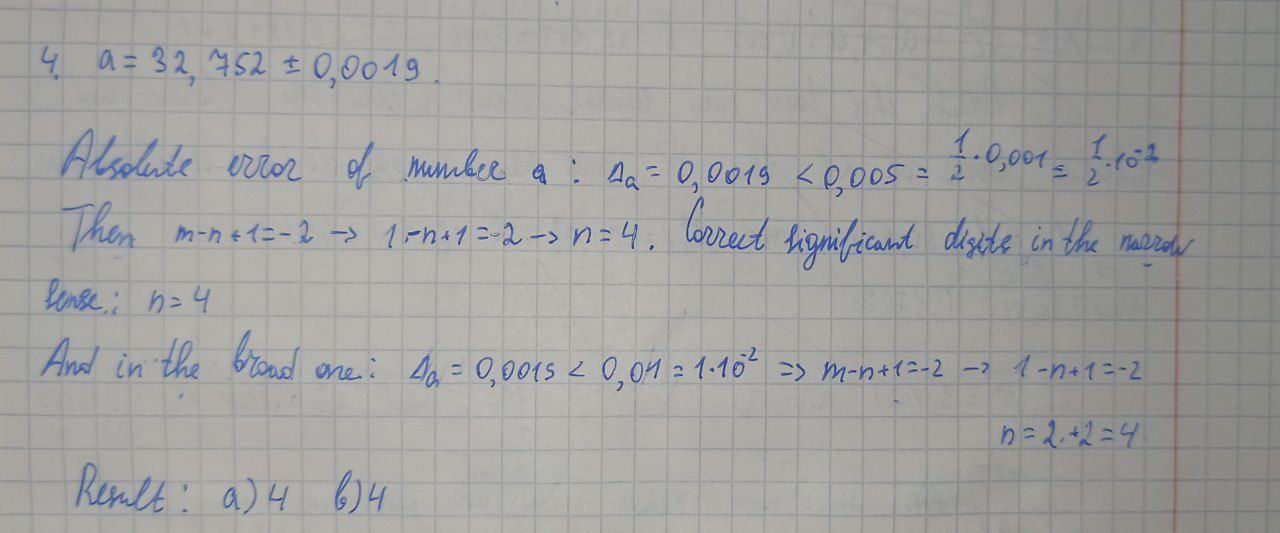 4. a = 32,752 ± 0,0019.
Absolute error of number a : Δa = 0,0019 < 0,005 = 1/2 · 0,001 = 1/2 · 10^-2
Then m-n+1=-2 → 1-n+1=-2 → n=4. Correct significant digits in the narrow
sense: n=4
And in the broad one: Δa = 0,0019 < 0,01 = 1·10^-2 => m-n+1=-2 → 1-n+1=-2
n=2+2=4
Result: a) 4 b) 4